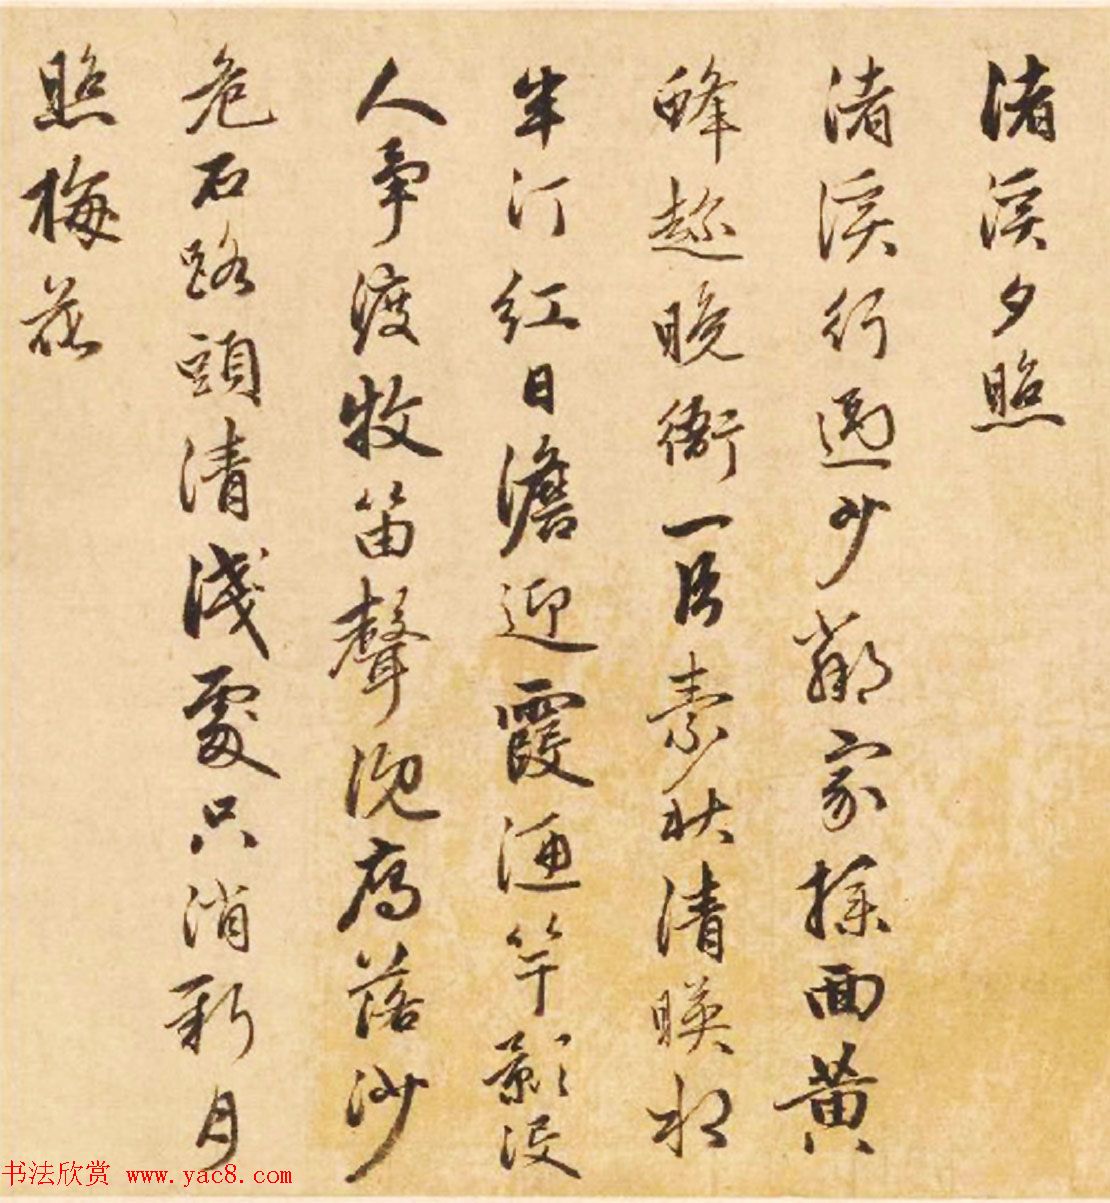 渚溪夕照
渚溪行過少鄰家撲面黃
蜂趂晚衙一段素秋清暎水
半汀紅日澹迎霞竿影沒
人爭渡牧笛聲沉鴈落沙
危石路頭清淺處只消新月
照梅花
书法欣赏 www.yac8.com